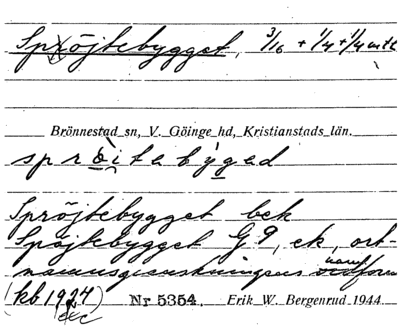 Spröjtebygget, 3/16 + 1/4 + 1/4 mtl
Brönnestad sn, V. Göinge hd, Kristianstads län.
spröitebýged
Spröjtebygget bek
Spöjtebygget G9, ek, ort-
namnsgranskningens namnform
(kb 1924)
Nr 5354. Erik W. Bergenrud 1944.